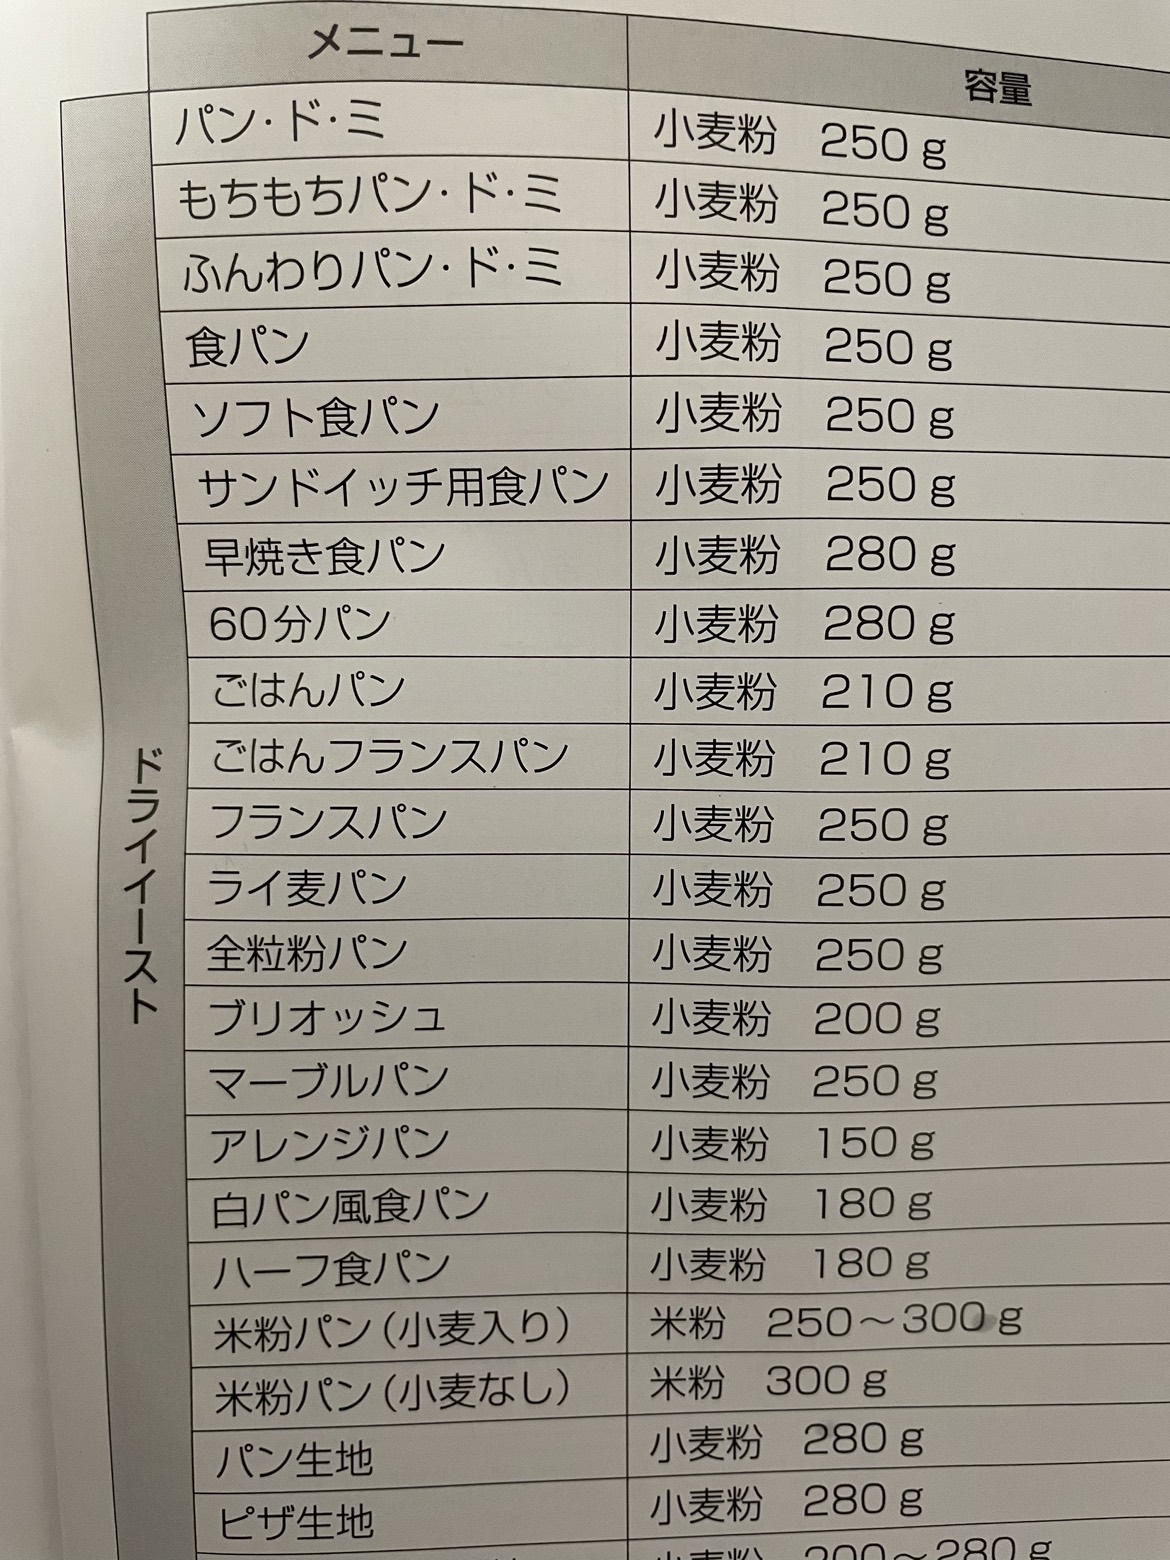 メニュー 容量
パン・ド・ミ 小麦粉 250 g
もちもちパン・ド・ミ 小麦粉 250 g
ふんわりパン・ド・ミ 小麦粉 250 g
食パン 小麦粉 250 g
ソフト食パン 小麦粉 250 g
サンドイッチ用食パン 小麦粉 250 g
早焼き食パン 小麦粉 280 g
60分パン 小麦粉 280 g
ごはんパン 小麦粉 210 g
ごはんフランスパン 小麦粉 210 g
フランスパン 小麦粉 250 g
ライ麦パン 小麦粉 250 g
全粒粉パン 小麦粉 250 g
ブリオッシュ 小麦粉 200 g
マーブルパン 小麦粉 250 g
アレンジパン 小麦粉 150 g
白パン風食パン 小麦粉 180 g
ハーフ食パン 小麦粉 180 g
米粉パン（小麦入り） 米粉 250〜300 g
米粉パン（小麦なし） 米粉 300 g
パン生地 小麦粉 280 g
ピザ生地 小麦粉 280 g
小麦粉 200〜280 g
ドライイースト